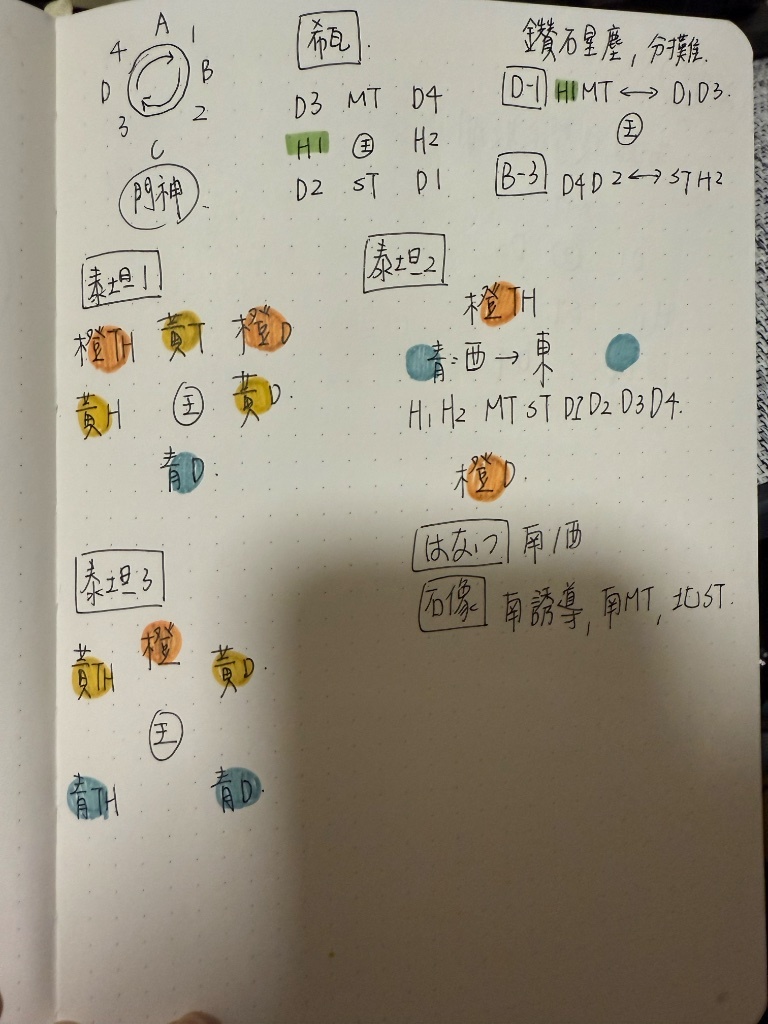 A
4 1
D B
3 2
C
門神.
希瓦.
D3 MT D4
H1 王 H2
D2 ST D1
鑽石星塵, 分攤.
D-1 H1 MT ↔ D1 D3.
王
B-3 D4 D2 ↔ ST H2
泰坦1
橙TH 黃T 橙D
黃H 王 黃D.
青D.
泰坦2
橙TH
青:西→東
H1 H2 MT ST D1 D2 D3 D4.
橙D.
はないつ 南/西
石像 南誘導, 南MT, 北ST.
泰坦3
橙
黃TH 黃D.
王
青TH 青D.